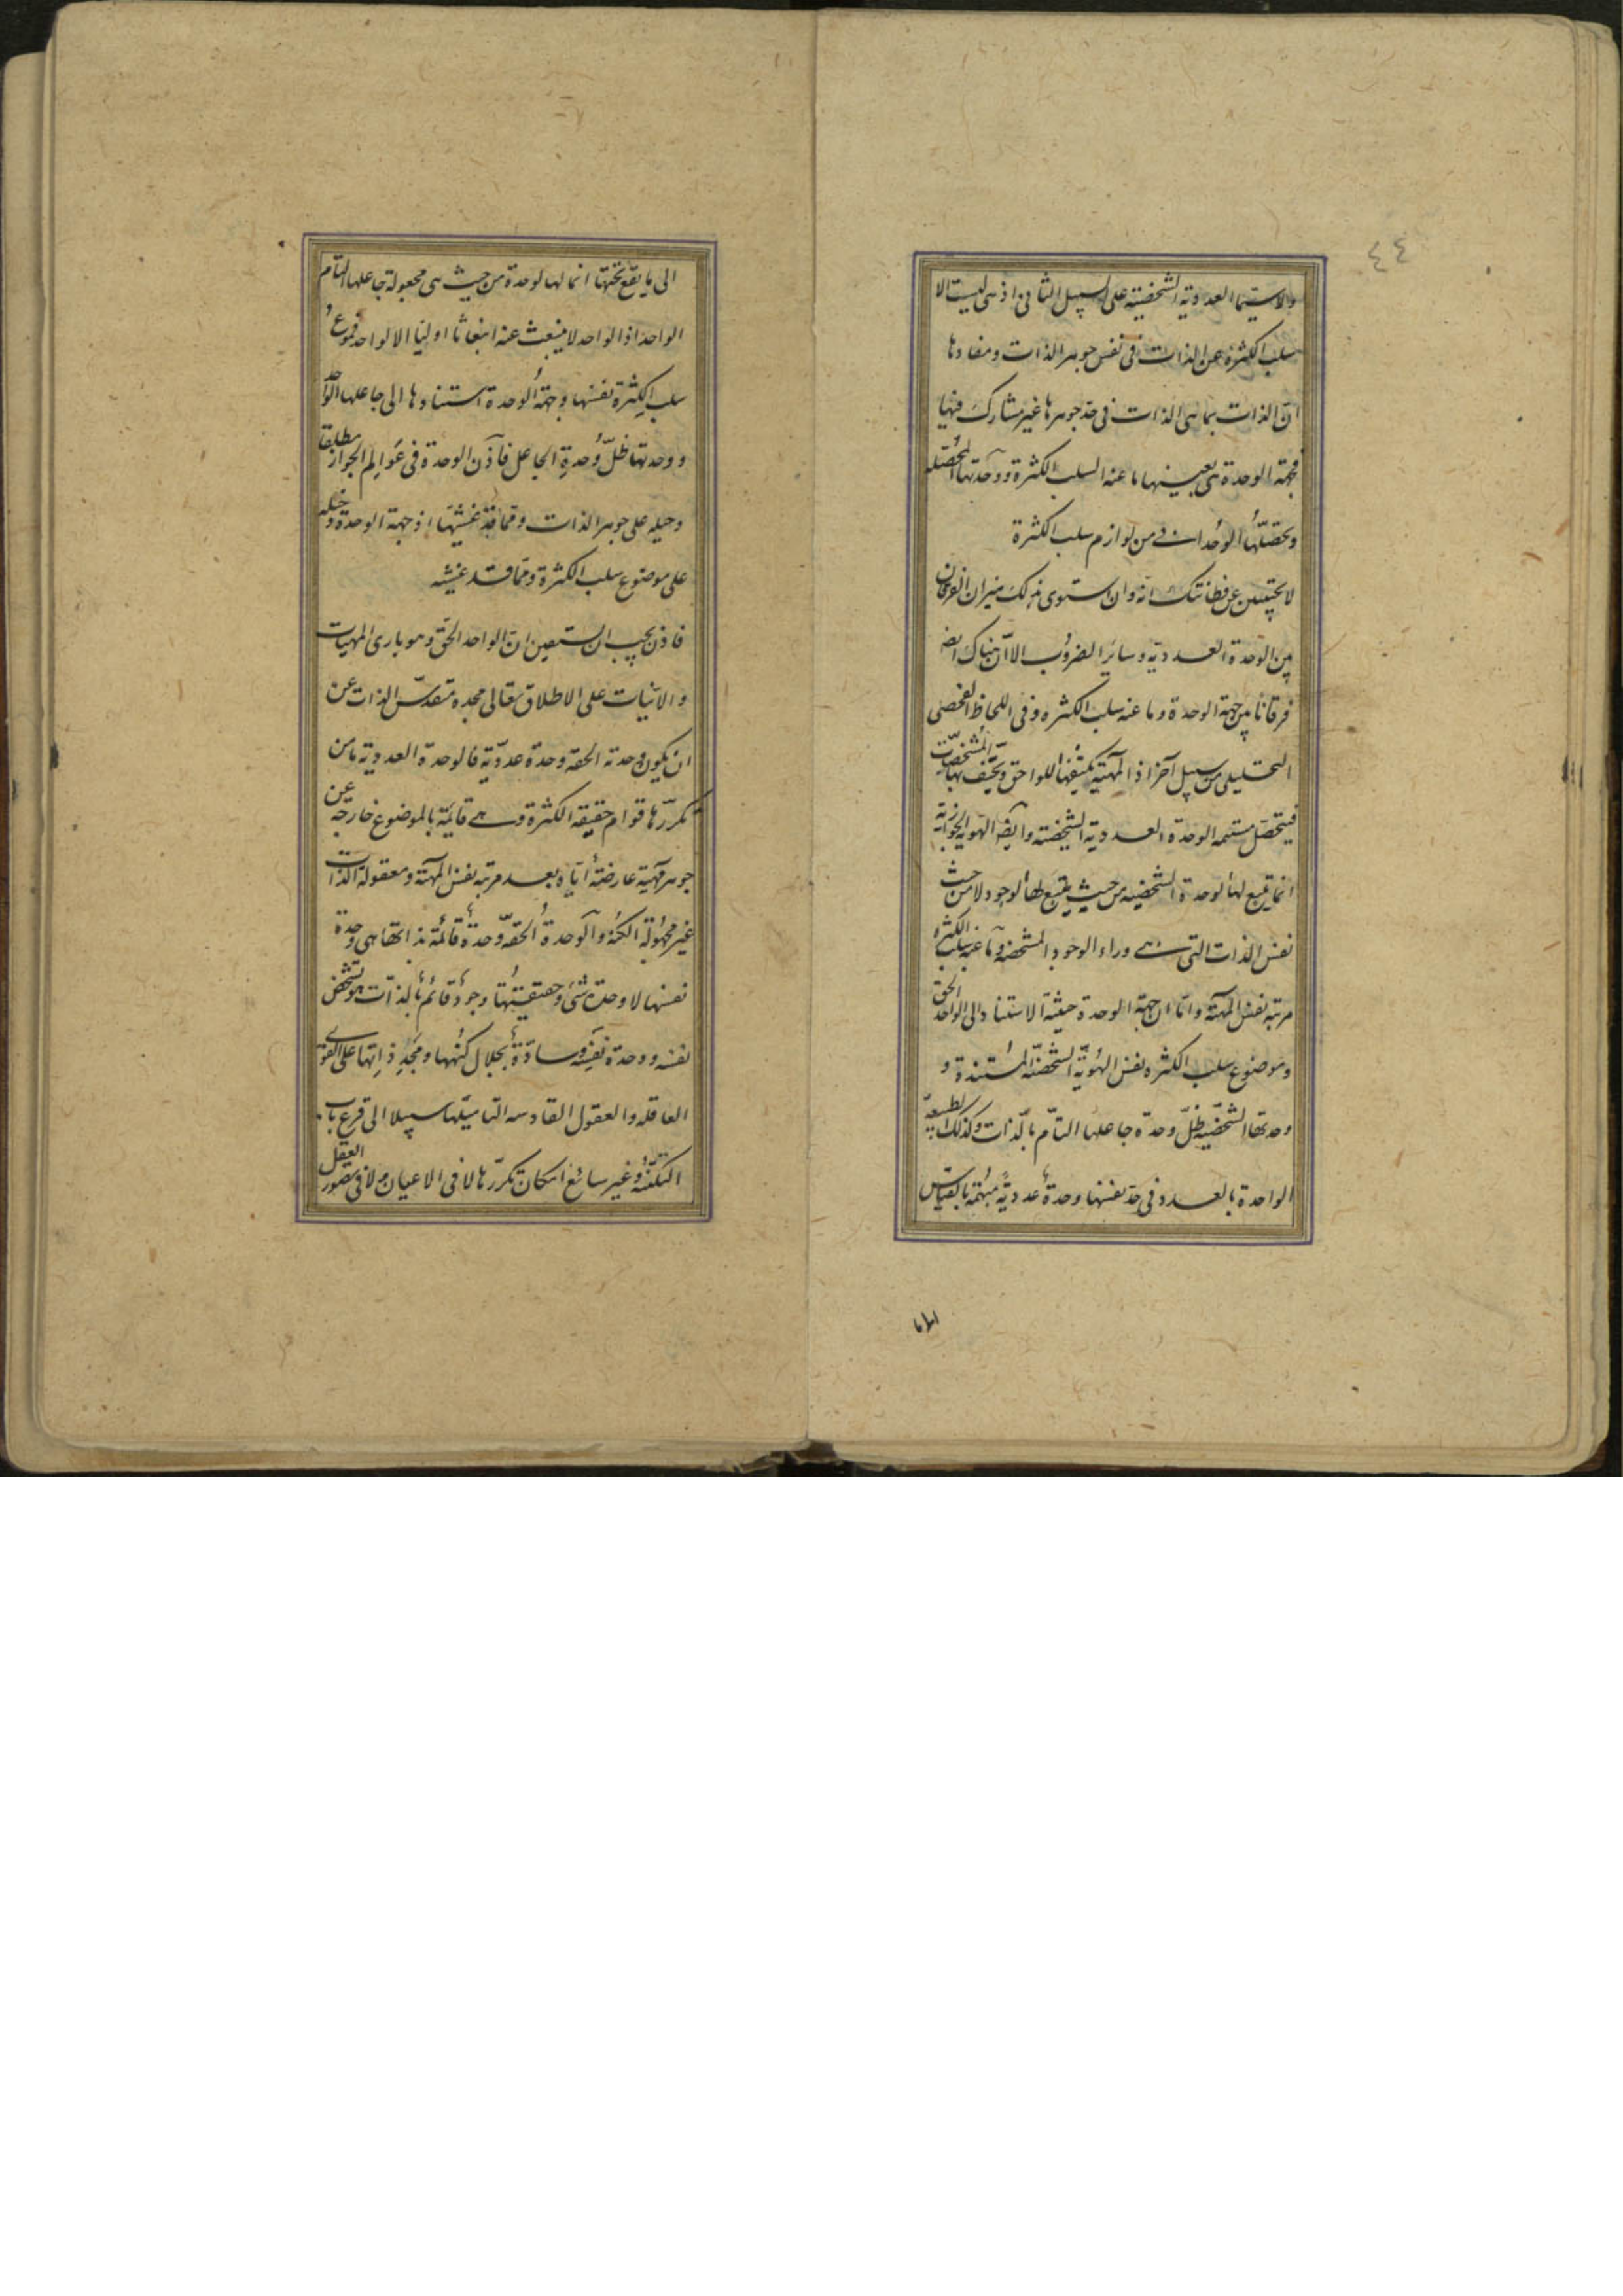 ٤٤
ولاسيما العددية الشخصية على السبيل الثانى اذ هى ليست الا
سلب الكثرة عن الذات فى نفس جوهر الذات ومفادها
ان الذات بما هى الذات فى حد جوهرها غير مشارك فيها
فجهة الوحدة هى بعينها ما عنه السلب الكثرة ووحدتها المحصلة
وتحصلها الوحدات من لوازم سلب الكثرة
لا يحتبسن عن فطانتك انه وان استوى بذلك ميزان الفرقان
بين الوحدة العددية وسائر الضروب الا ان هناك ايضا
فرقانا بين جهة الوحدة وما عنه سلب الكثرة وفى اللحاظ الفحصى
التحليلى من سبيل آخر اذ المهية يكتنفها اللواحق بها المشخصات
فيتحصل الوحدة العددية الشخصية وايضا الهوية الجوازية
انما يتبع لها الوحدة الشخصية من حيث يتبع لها الوجود لا من حيث
نفس الذات التى هى وراء الوجود المشخصة وما عنه سلب الكثرة
مرتبة نفس المهية واما ان جهة الوحدة حيثية الاستناد الى الواحد الحق
وموضوع سلب الكثرة نفس الهوية الشخصية المستندة و
وحدتها الشخصية ظل وحدة جاعلها التام بالذات وكذلك الطبيعة
الواحدة بالعدد فى حد نفسها وحدة عددية مبهمة بالقياس
الى ما
الى ما يقع تحتها انما لها الوحدة من حيث هى مجعولة جاعلها التام
الواحد اذ الواحد لا ينبعث عنه انبعاثا اوليا الا الواحد فموضوع
سلب الكثرة نفسها وجهة الوحدة استنادها الى جاعلها الواحد
ووحدتها ظل وحدة الجاعل فاذن الوحدة فى عوالم الجواز مطلقا
دخيلة على جوهر الذات ومما قد غشيها اذ جهة الوحدة دخيلة
على موضوع سلب الكثرة ومما قد غشيه
فاذن يجب ان الواحد الحق وهو بارى المهيات
والانيات على الاطلاق تعالى مجده متقدس الذات عن
ان يكون وحدته الحقة وحدة عددية فالوحدة العددية ما من
تكررها قوام حقيقة الكثرة وهى قائمة بالموضوع خارجة عن
جوهر مهية عارضة اياه بعد مرتبة نفس المهية ومعقولة الذات
غير مجهولة الكنه والوحدة الحقة وحدة قائمة بذاتها هى وحدة
نفسها لا وحدة شئ وحقيقتها وجود قائم بالذات هو تشخص
نفسه ووحدة نفسه وسادة بجلال كنهها ومجد ذاتها على القوى
العاقلة والعقول القادسة سبيلا الى قرع باب
التكنه وغير سائغ امكان تكررها لا فى الاعيان ولا فى تصور العقل